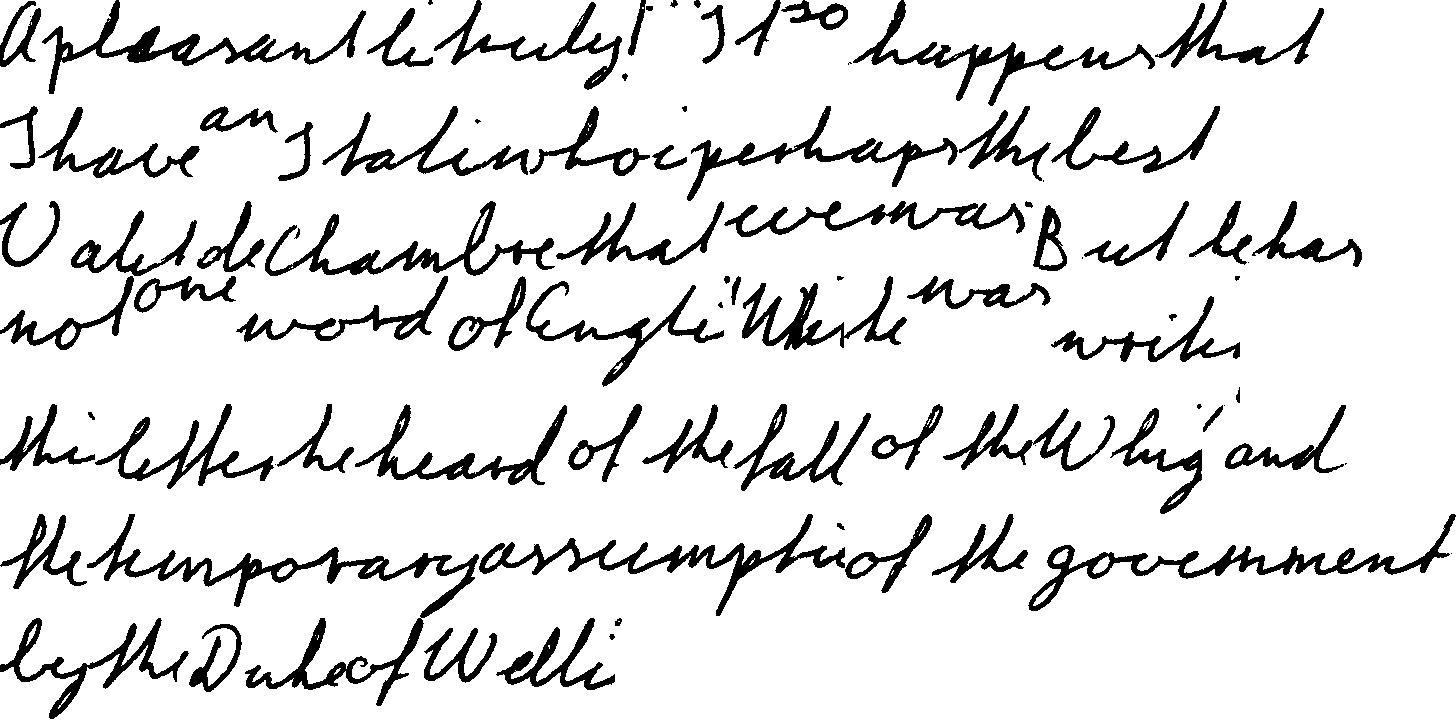 A pleasant li truly!" It so happens that
I have an Itali who i perhaps the best
Valet de Chambre that ever was. But he has
not one word of Engli "While was writi
thi letter he heard of the fall of the Whig and
the temporary assumptio of the government
by the Duke of Welli